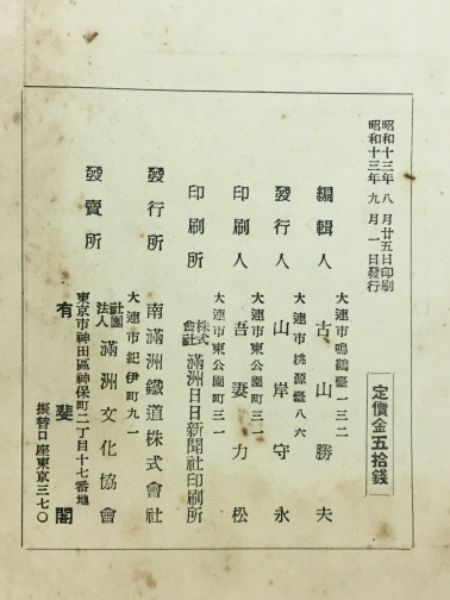 昭和十三年八月廿五日印刷
昭和十三年九月一日發行
定價金五拾錢
大連市鳴鶴臺一三二
編輯人 古山勝夫
大連市桃源臺八六
發行人 山岸守永
大連市東公園町三一
印刷人 吾妻力松
大連市東公園町三一
印刷所 株式會社 滿洲日日新聞社印刷所
大連市紀伊町九一
發行所 南滿洲鐵道株式會社
社團法人 滿洲文化協會
東京市神田區神保町二丁目十七番地
發賣所 有斐閣
振替口座東京三七〇